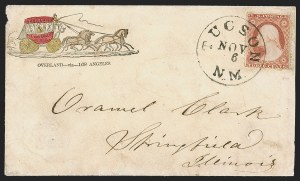 OVERLAND—via—LOS ANGELES
TUCSON
NOV
6
N.M.
Oramel Clark
Springfield
Illinois